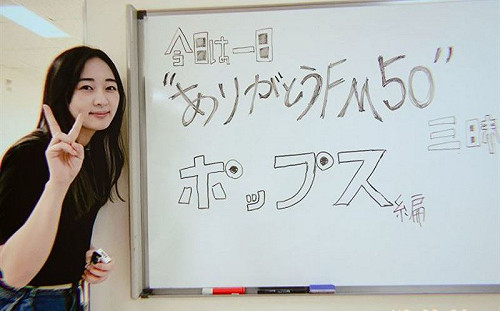 今日は一日
“ありがとうFM50”
三昧
ポップス編